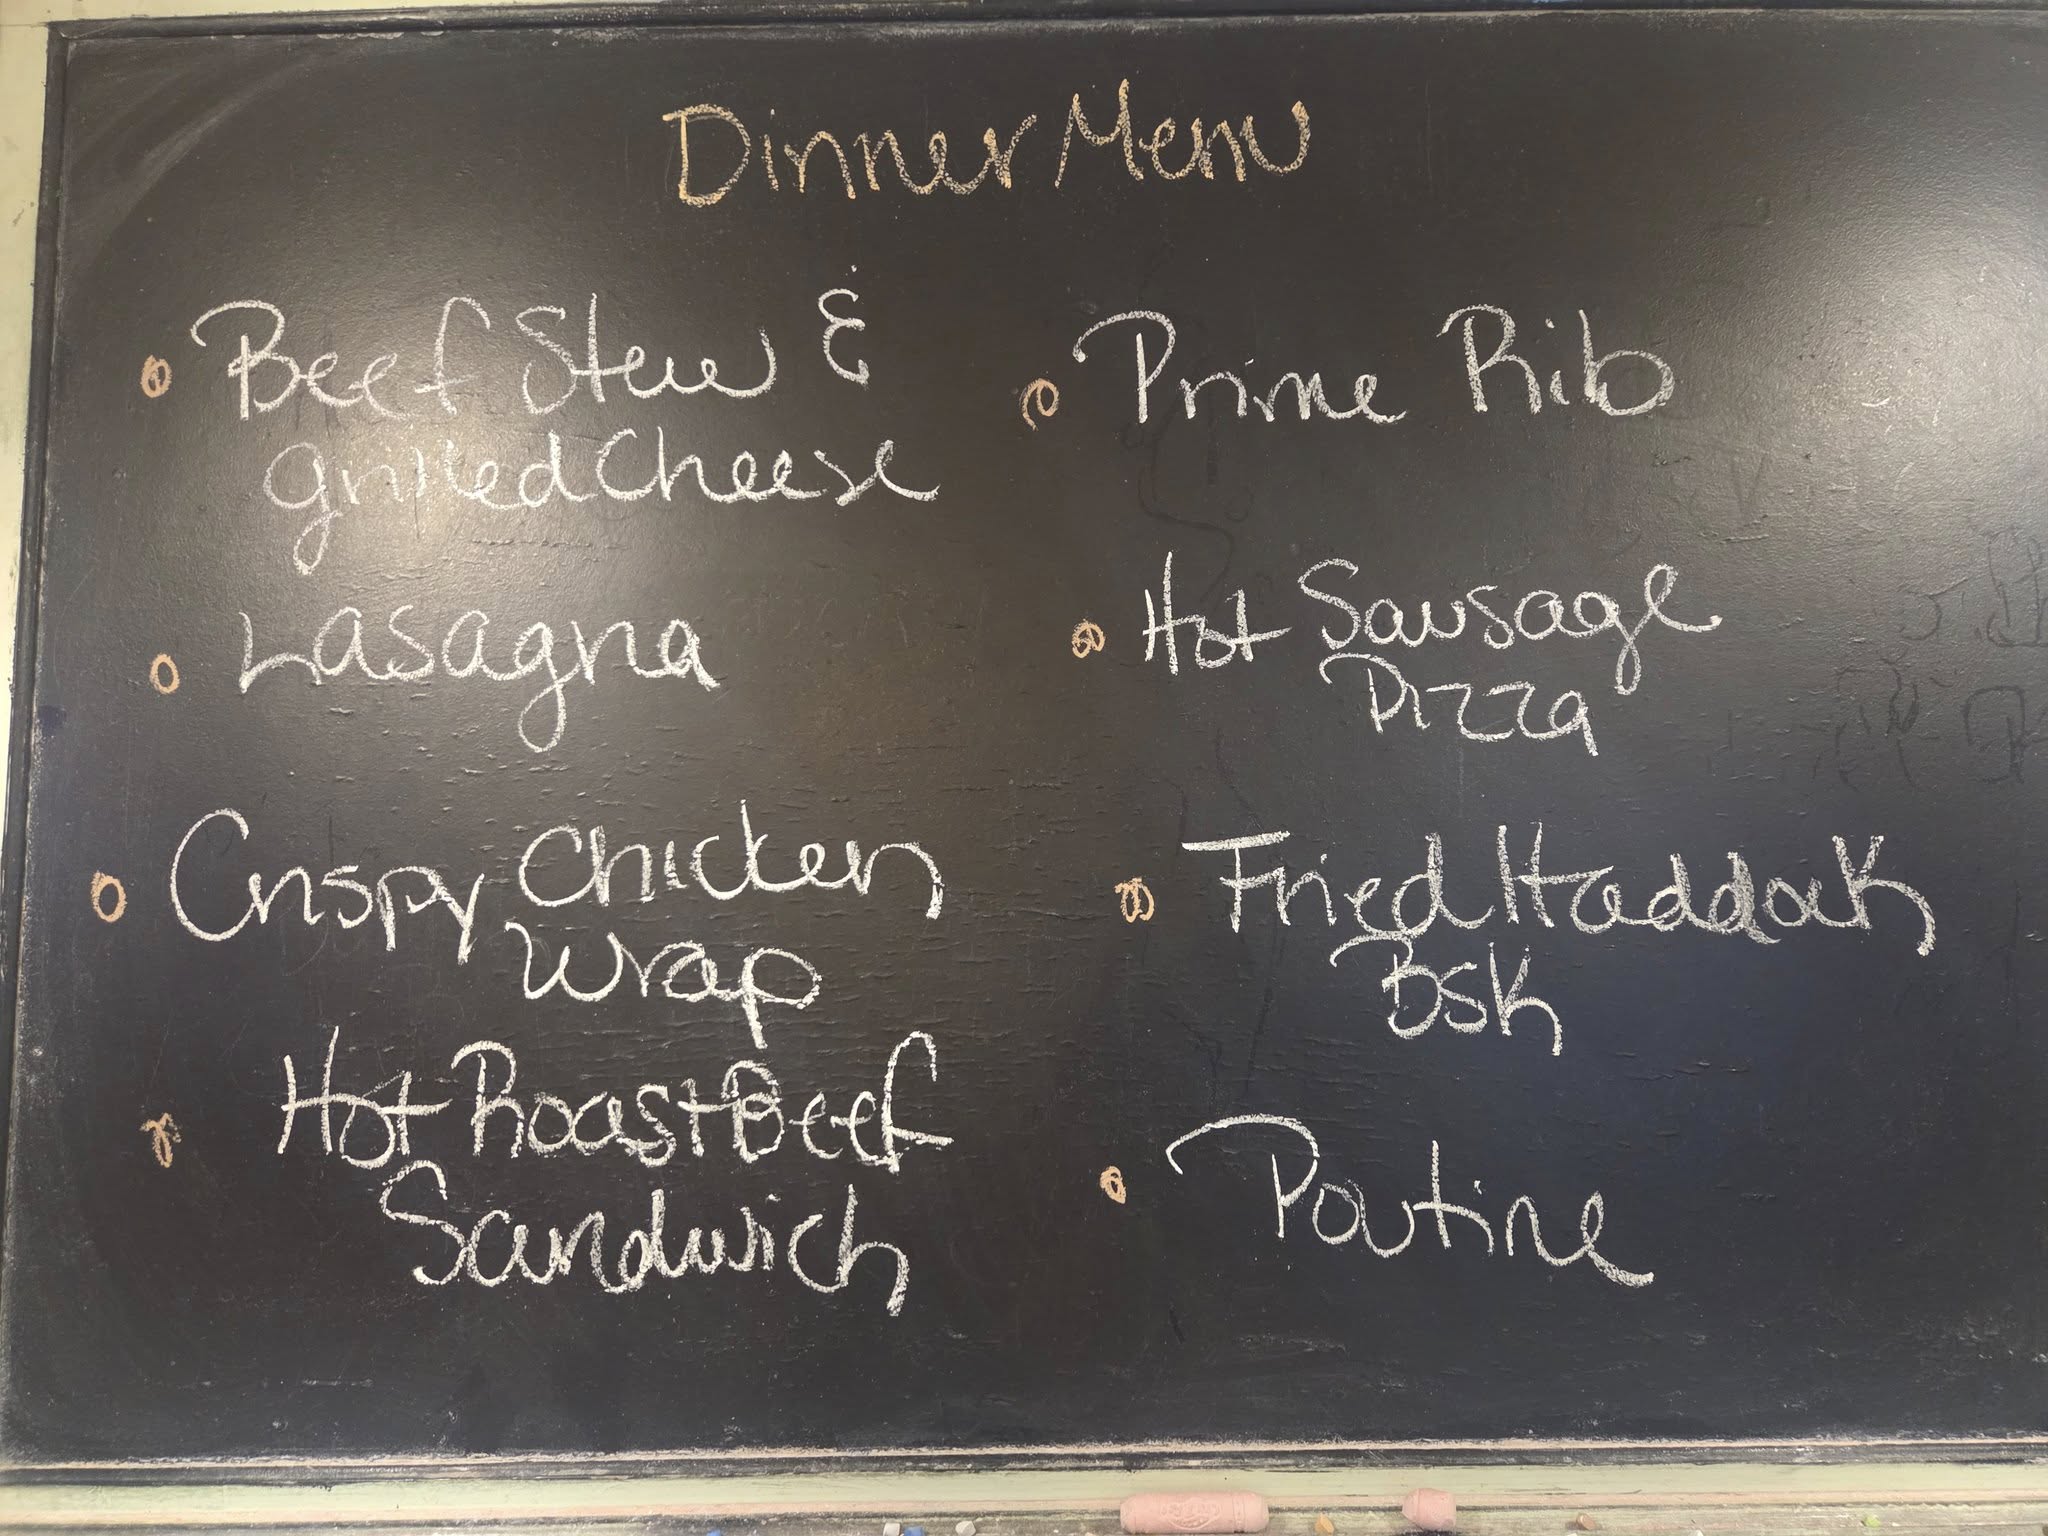 Dinner Menu
Beef Stew &
grilled Cheese
Lasagna
Crispy Chicken
Wrap
Hot Roast Beef
Sandwich
Prime Rib
Hot Sausage
Pizza
Fried Haddock
BSK
Poutine